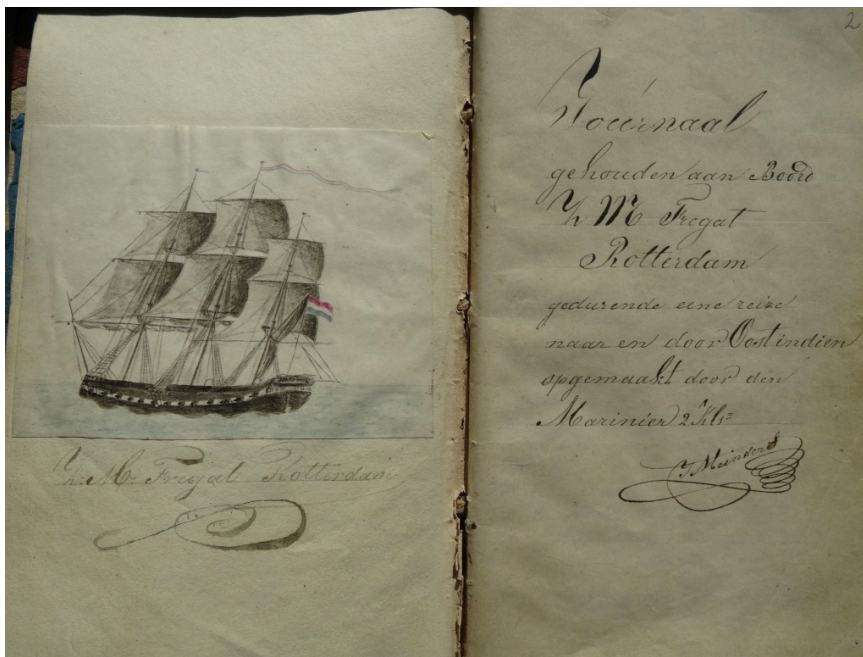 Zr. M. Fregat Rotterdam
2
Journaal
gehouden aan Boord
Zr M Fregat
Rotterdam
gedurende eene reize
naar en door Oostindien
opgemaakt door den
Marinier 2e Kls
J Meinders